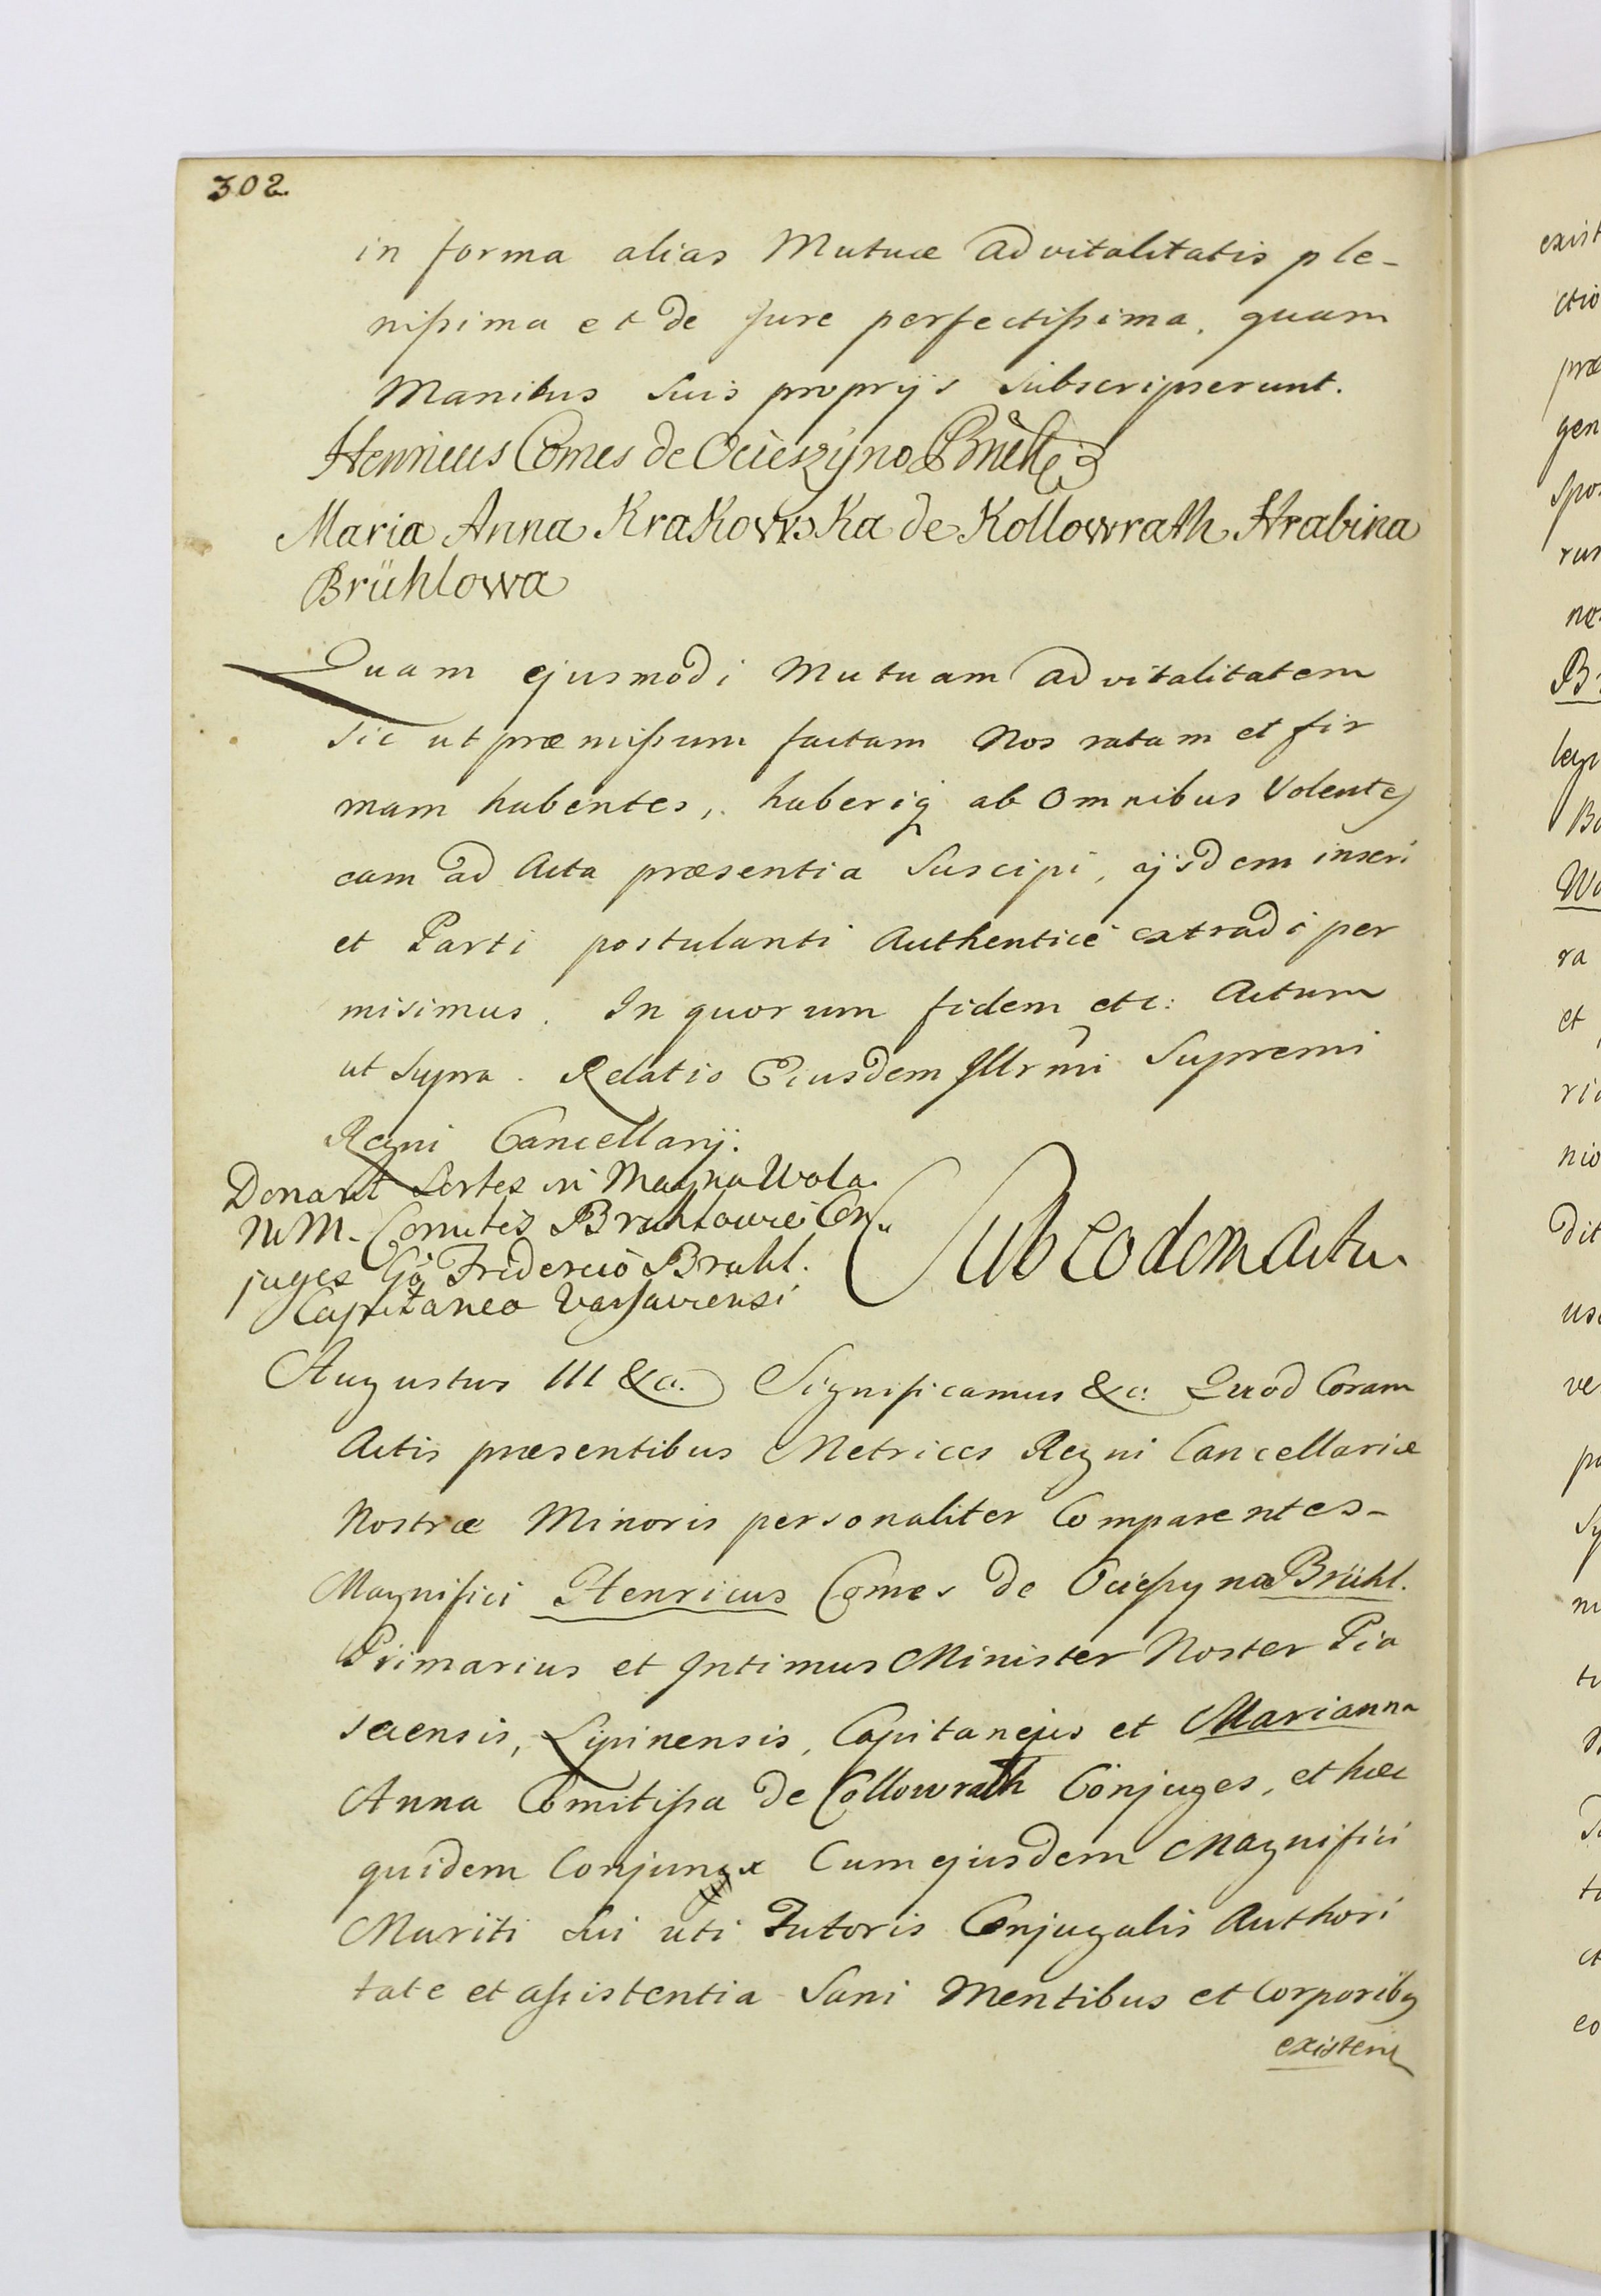 302.
in forma alias Mutuæ Advitalitatis ple-
nissima et de Jure perfectissima, quam
Manibus suis proprijs subscripserunt.
Henricus Comes de Ocieszyno Brühl
Maria Anna Krakowska de Kollowrath Hrabina
Brühlowa
Quam ejusmodi Mutuam Advitalitatem
sic ut præmissum factam Nos ratam et fir
mam habentes, haberiq ab Omnibus Volentes
eam ad Acta præsentia Suscipi, ijsdem inseri
et Parti postulanti Authenticè extradi per
misimus. In quorum fidem etc: Actum
ut supra. Relatio Eiusdem Illrmi Supremi
Regni Cancellarij.
Donant Sortes in Magna Wola
MM. Comites Bruhlowie Con
juges Gō Friderico Bruhl.
Capitaneo Varsaviensi
Sub eodem actu.
Augustus III &c. Significamus &c: Quod Coram
Actis præsentibus Metrices Regni Cancellariæ
Nostræ Minoris personaliter Comparentes-
Magnifici Henricus Comes de Ocieszyno Brühl.
Primarius et Intimus Minister Noster Pia
secensis, Lipinensis, Capitanejus et Marianna
Anna Comitissa de Collowrath Conjuges, et hæc
quidem Conjunx Cum ejusdem Magnifici
Mariti sui uti Tutoris Conjugalis Authori
tate et assistentia Sani Mentibus et Corporibq
existen